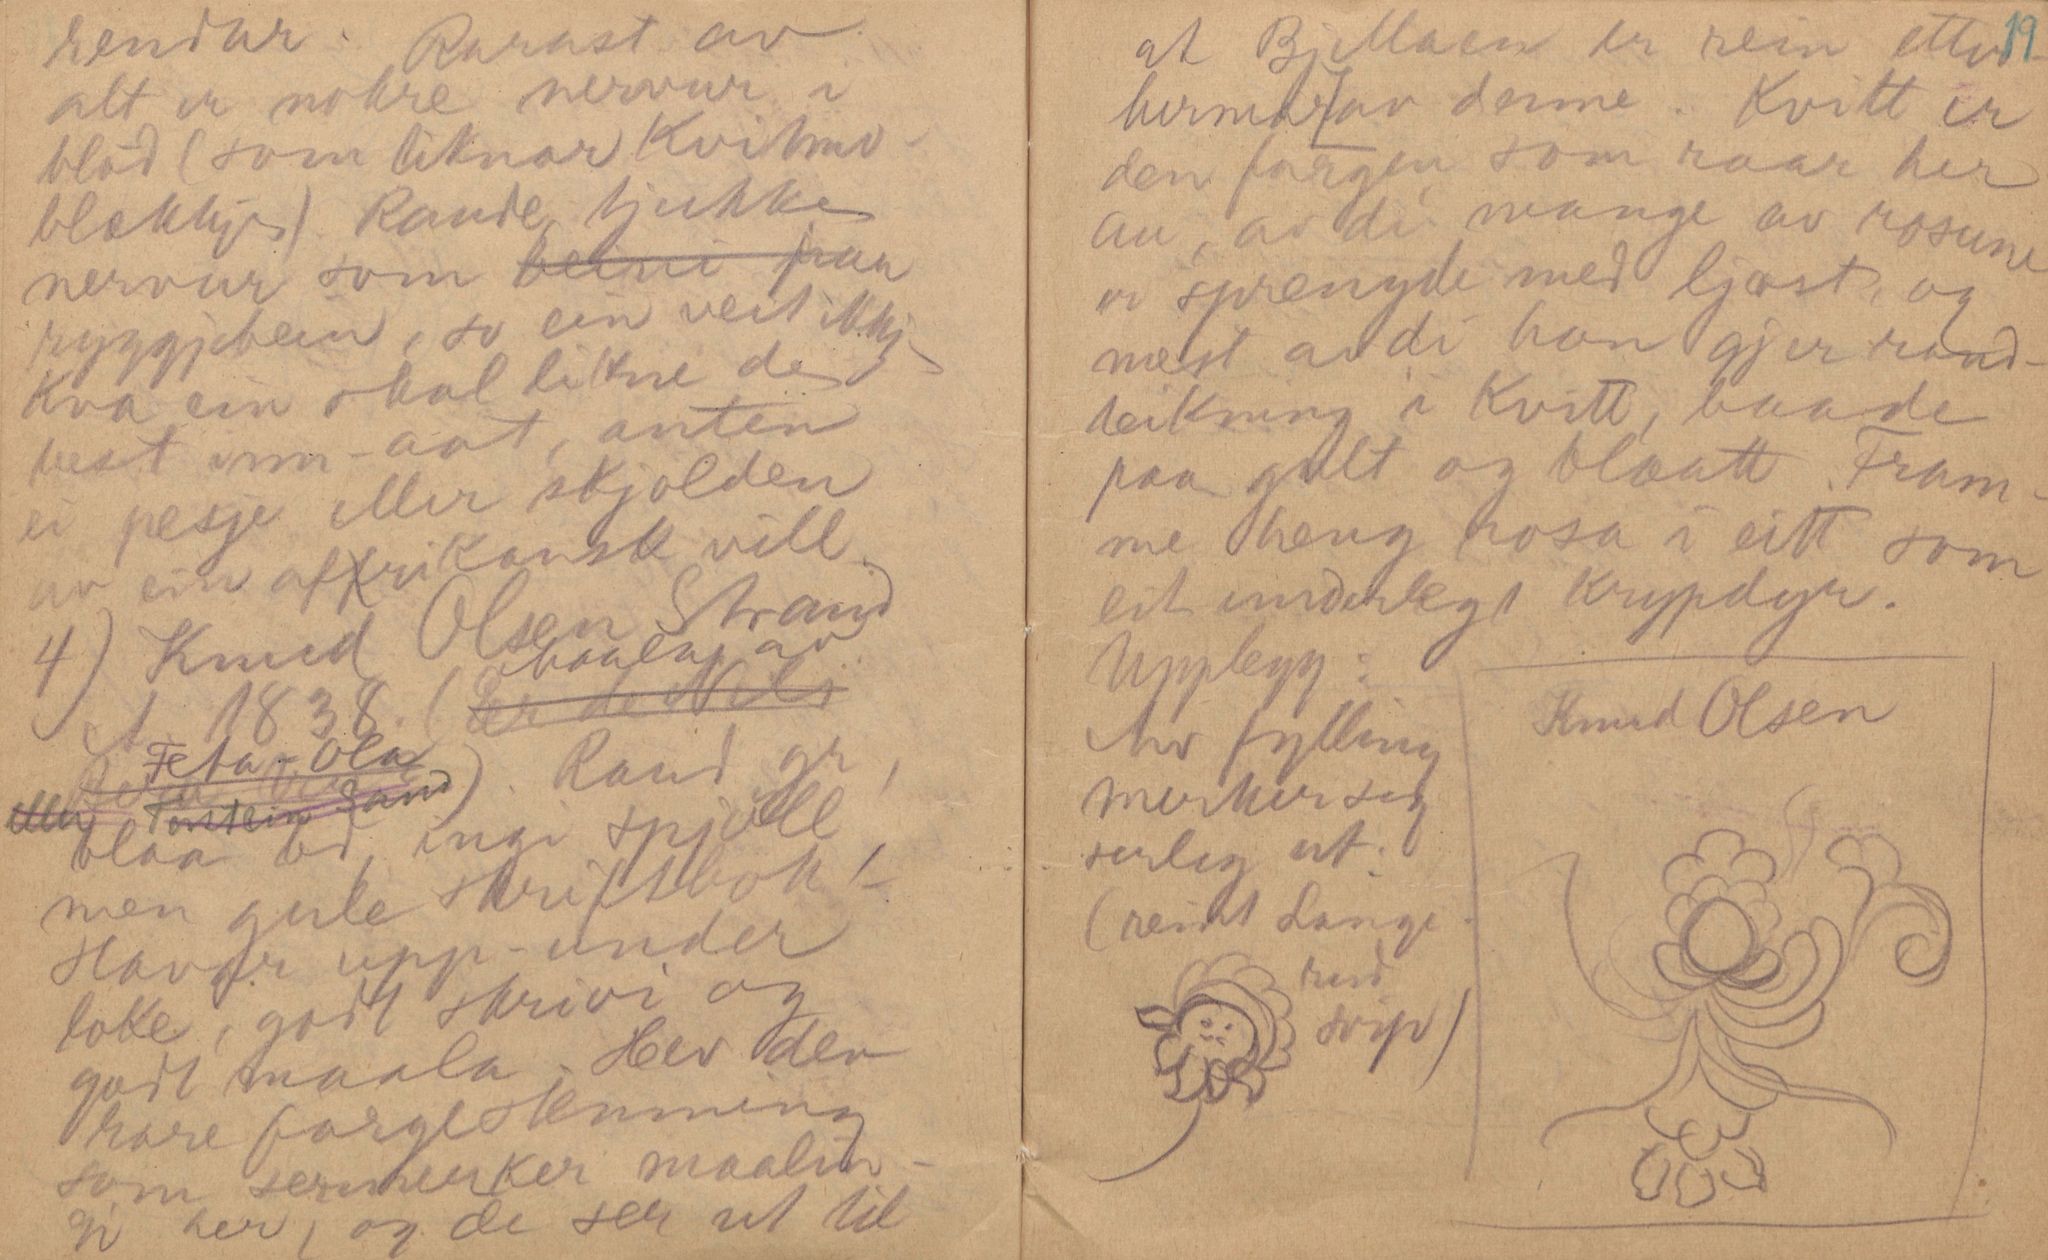 rendar. Rarast av
alt er nokre nervur i
blod (som liknar Kvitmo-
blekkje) Raude, tjukke
nervur som beini fraa
ryggjebein, so ein veit ikkje
kva ein skal likne de
best inn-aat, anten
ei pesje eller skjolden
av ein affrikansk vill.
4) Knud Olsen Strand
maalaj av
et 1838. (Er de Nils
Feta-Ola
eller Torstein Sand) Raud gr,
blaa bd, ingi spjell
men gule skriftbok!-
stavar upp-under
loke, godt skrivi og
godt maala. Hev den
rare fargestemning
som sermerker maalin-
gi her, og de ser ut til
19
at Bjellaen er rein etter-
hermar av denne. Kvitt er
den fargen som raar her
au, av di mange av rosune
er sprengde med ljost, og
mest av di han gjer rand-
teikning i Kvitt, baade
paa gult og blaatt. Fram-
me heng rosa i eitt som
eit underlegt krypdyr.
Upplegg:
Av fylling
merker seg
serleg ut:
(reint Lange-
rud
svip)
Knud Olsen